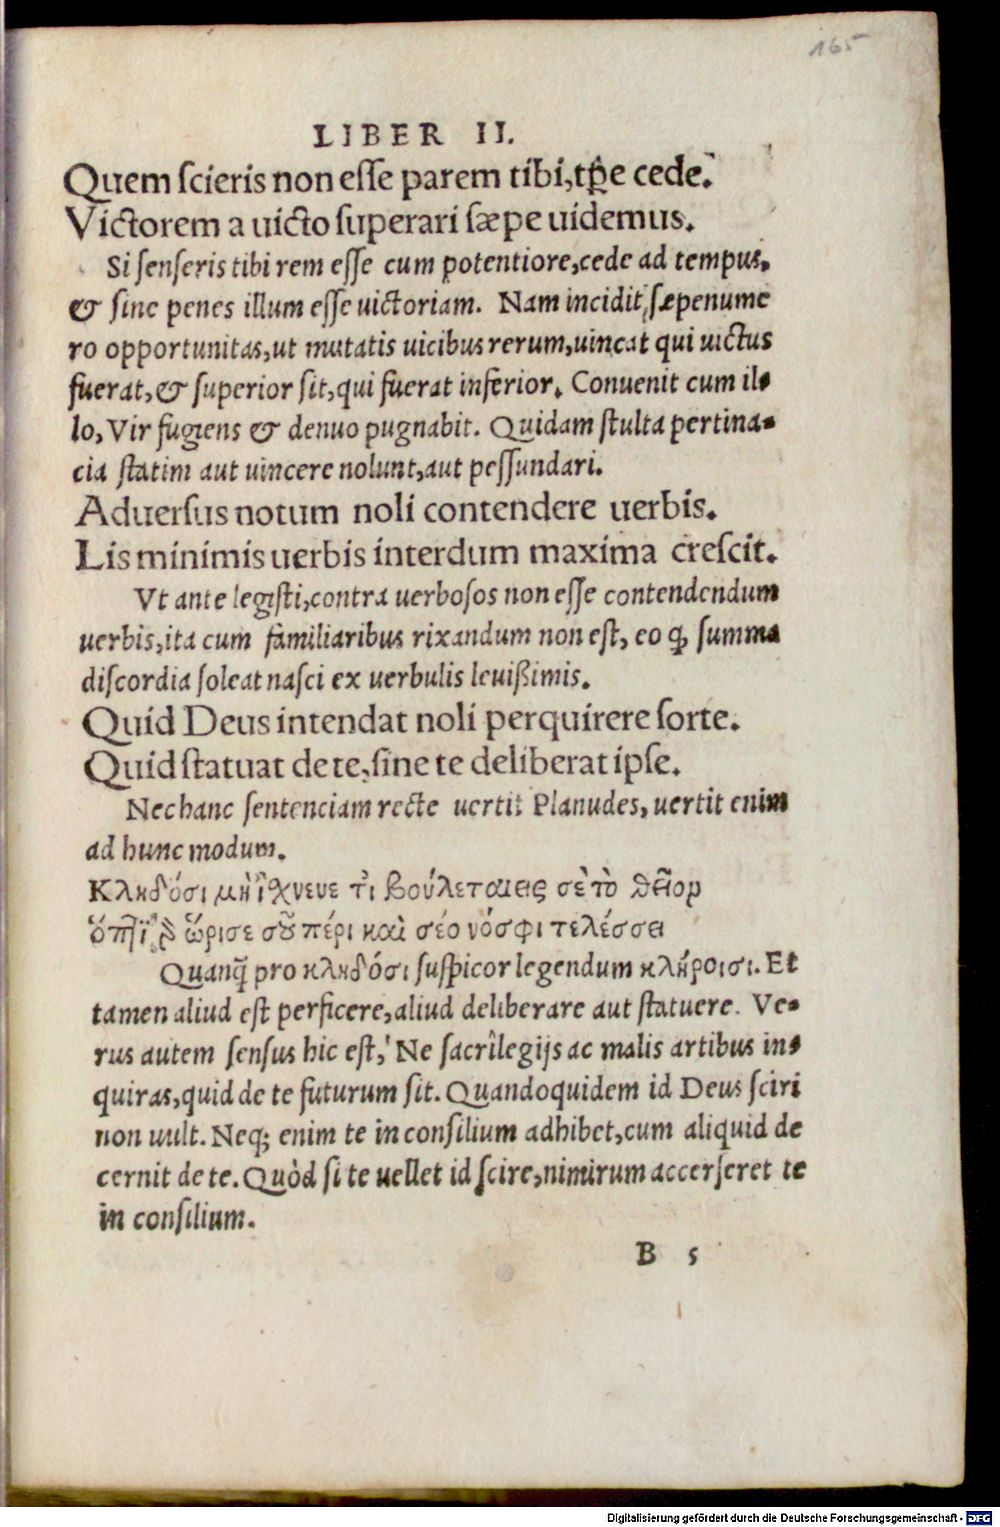 165
LIBER II.
Quem scieris non esse parem tibi, tꝑe cede.
Victorem a uicto superari sæpe uidemus.
Si senseris tibi rem esse cum potentiore, cede ad tempus,
& sine penes illum esse uictoriam. Nam incidit sæpenume
ro opportunitas, ut mutatis uicibus rerum, uincat qui uictus
fuerat, & superior sit, qui fuerat inferior. Conuenit cum il-
lo, Vir fugiens & denuo pugnabit. Quidam stulta pertina-
cia statim aut uincere nolunt, aut pessundari.
Aduersus notum noli contendere uerbis.
Lis minimis uerbis interdum maxima crescit.
Vt ante legisti, contra uerbosos non esse contendendum
uerbis, ita cum familiaribus rixandum non est, eo ꝙ summa
discordia soleat nasci ex uerbulis leuißimis.
Quid Deus intendat noli perquirere sorte.
Quid statuat de te, sine te deliberat ipse.
Nec hanc sentenciam recte uertit Planudes, uertit enim
ad hunc modum.
Κληδόσι μὴ ἴχνευε τὶ βούλεται εἰς σὲ τὸ θεῖον
ὥρισε σοῦ πέρι καὶ σέο νόσφι τελέσσει
Quanq̃ pro κληδόσι suspicor legendum κλήροισι. Et
tamen aliud est perficere, aliud deliberare aut statuere. Ve-
rus autem sensus hic est, Ne sacrilegijs ac malis artibus in-
quiras, quid de te futurum sit. Quandoquidem id Deus sciri
non uult. Neq; enim te in consilium adhibet, cum aliquid de
cernit de te. Quòd si te uellet id scire, nimirum accerseret te
in consilium.
B 5
Digitalisierung gefördert durch die Deutsche Forschungsgemeinschaft - DFG